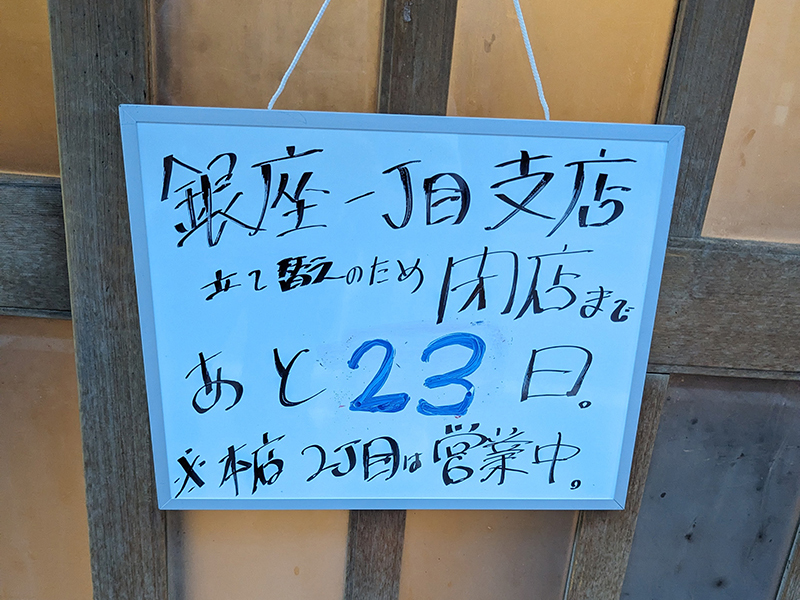 銀座一丁目支店
立て替えのため閉店まで
あと23日。
※本店2丁目は営業中。